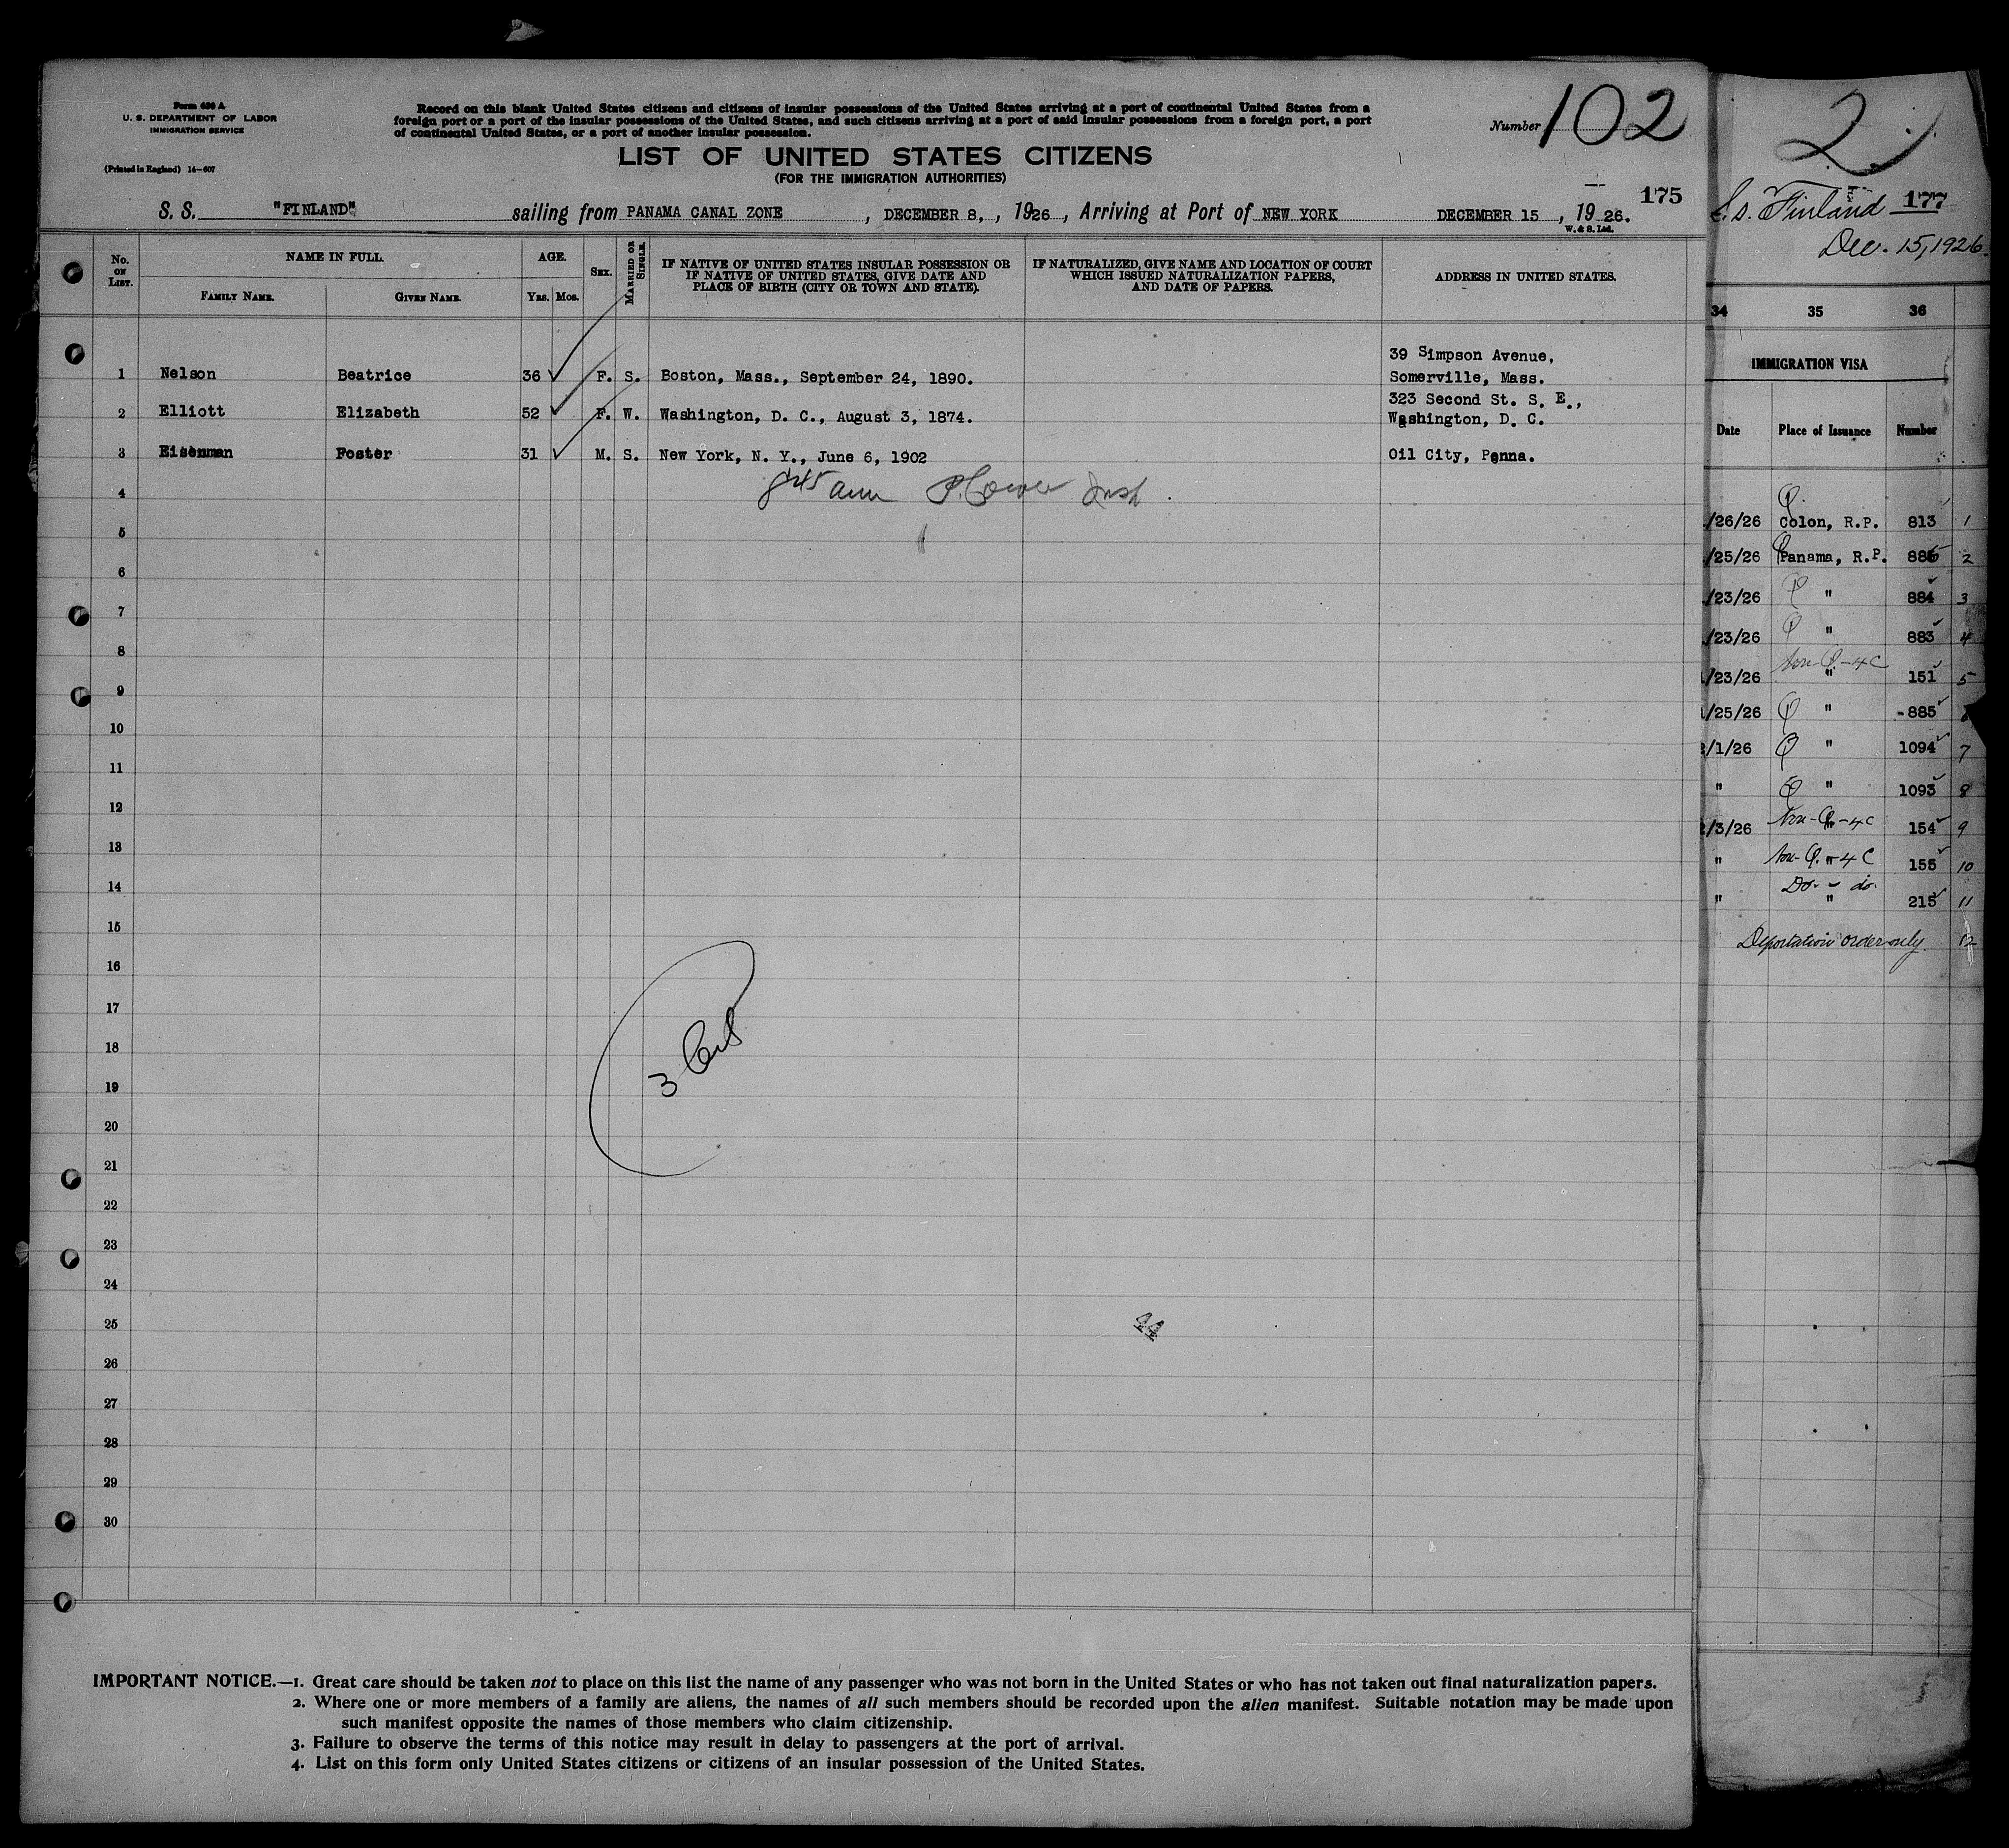 Form 630 A
U. S. DEPARTMENT OF LABOR
IMMIGRATION SERVICE
(Printed in England) 14—607
Record on this blank United States citizens and citizens of insular possessions of the United States arriving at a port of continental United States from a
foreign port or a port of the insular possessions of the United States, and such citizens arriving at a port of said insular possessions from a foreign port, a port
of continental United States, or a port of another insular possession.
Number 102
LIST OF UNITED STATES CITIZENS
(FOR THE IMMIGRATION AUTHORITIES)
175
S. S. "FINLAND" sailing from PANAMA CANAL ZONE, DECEMBER 8, , 1926, Arriving at Port of NEW YORK DECEMBER 15, 1926.
W. & S. Ltd.
No. ON LIST.
NAME IN FULL.
FAMILY NAME.
GIVEN NAME.
AGE.
YRS. MOS.
SEX.
MARRIED OR SINGLE.
IF NATIVE OF UNITED STATES INSULAR POSSESSION OR
IF NATIVE OF UNITED STATES, GIVE DATE AND
PLACE OF BIRTH (CITY OR TOWN AND STATE).
IF NATURALIZED, GIVE NAME AND LOCATION OF COURT
WHICH ISSUED NATURALIZATION PAPERS,
AND DATE OF PAPERS.
ADDRESS IN UNITED STATES.
39 Simpson Avenue,
1 Nelson Beatrice 36 F. S. Boston, Mass., September 24, 1890. Somerville, Mass.
323 Second St. S. E.,
2 Elliott Elizabeth 52 F. W. Washington, D. C., August 3, 1874. Washington, D. C.
3 Eisenman Foster 31 M. S. New York, N. Y., June 6, 1902 Oil City, Penna.
4 845 am
5
6
7
8
9
10
11
12
13
14
15
16
17
18
3
19
20
21
22
23
24
25
44
26
27
28
29
30
IMPORTANT NOTICE.—1. Great care should be taken not to place on this list the name of any passenger who was not born in the United States or who has not taken out final naturalization papers.
2. Where one or more members of a family are aliens, the names of all such members should be recorded upon the alien manifest. Suitable notation may be made upon
such manifest opposite the names of those members who claim citizenship.
3. Failure to observe the terms of this notice may result in delay to passengers at the port of arrival.
4. List on this form only United States citizens or citizens of an insular possession of the United States.
2
S.S. Finland 177
Dec. 15, 1926.
34 35 36
IMMIGRATION VISA
Date Place of Issuance Number
Q.
/26/26 Colon, R.P. 813 1
/25/26 Q Panama, R.P. 886 2
/23/26 Q " 884 3
/23/26 Q " 883 4
Non-Q-4C
/23/26 " 151 5
/25/26 Q " -885
/1/26 Q " 1094 7
" Q " 1093 8
/3/26 Non-Q-4C 154 9
" Non-Q.-4C 155 10
Do - do.
" " 215 11
Deportation order only. 12